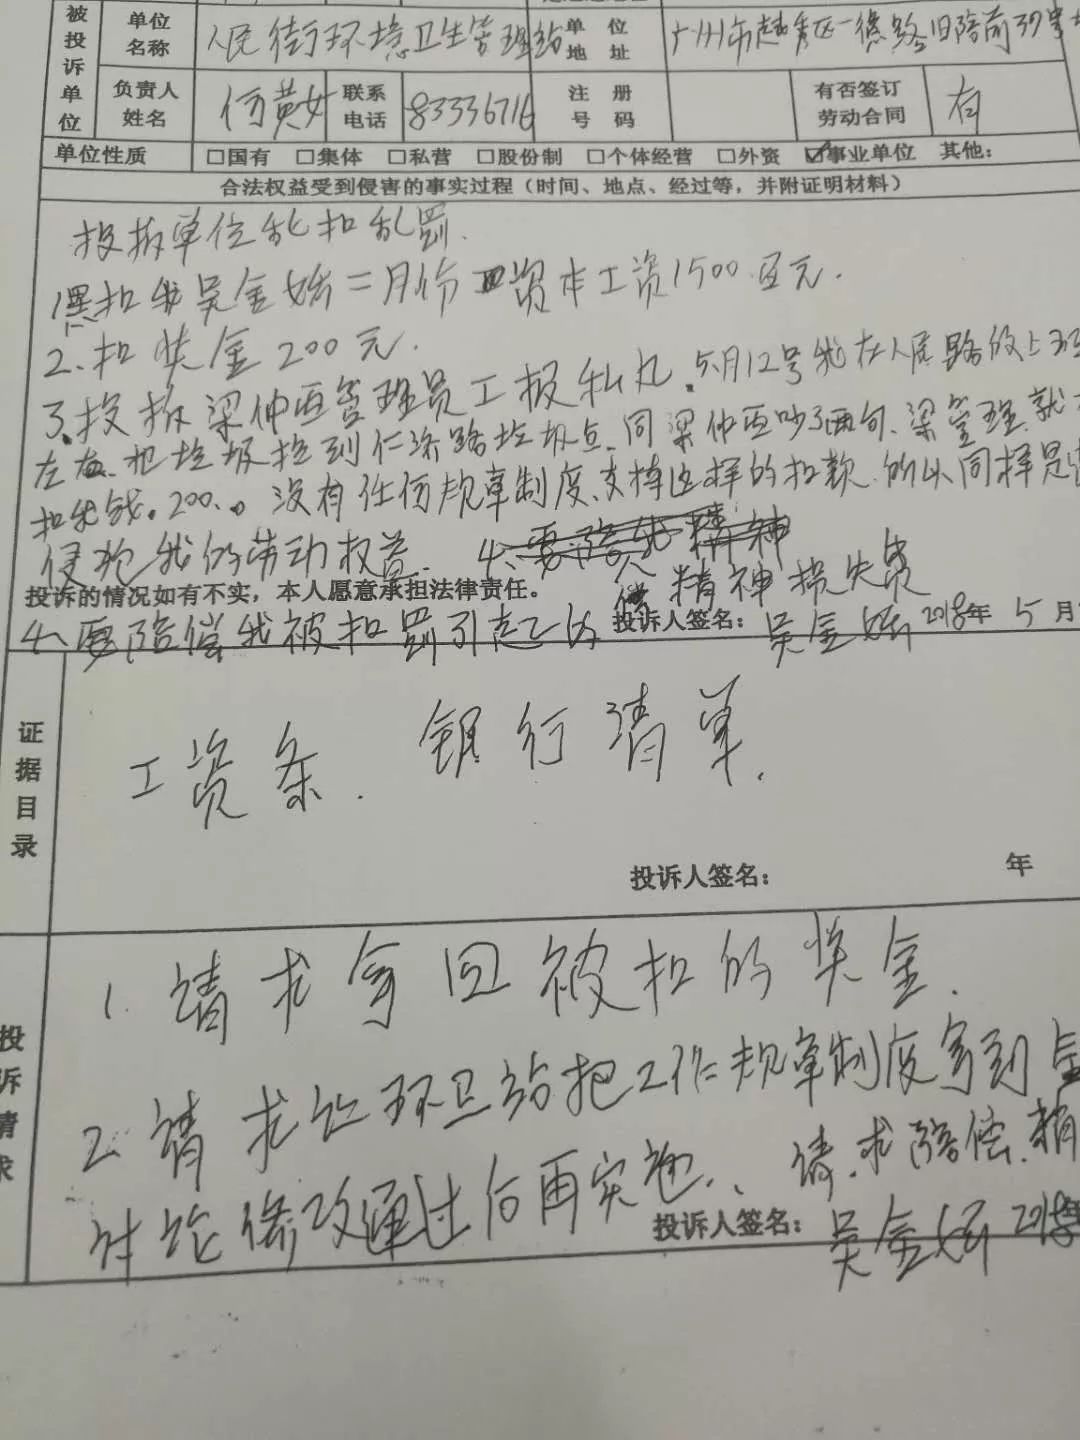 被投诉单位
单位名称 人民街环境卫生管理站 单位地址 广州市越秀区一德路旧部前39号
负责人姓名 何黄女 联系电话 83336716 注册号码 有否签订劳动合同 有
单位性质 □国有 □集体 □私营 □股份制 □个体经营 □外资 ☑事业单位 其他：
合法权益受到侵害的事实过程（时间、地点、经过等，并附证明材料）
投拆单位乱扣乱罚.
1.扣我吴金 二月份 资本工资1500 元.
2.扣奖金200元.
3.投拆梁仲 管理员工报私 .5月12号我在人民路的上班
左右、把垃圾 到仁济路垃圾点.同梁仲 吵了两句、梁管理就
扣我钱.200..。没有任何规章制度、支持这样的扣款.所以同样是
侵犯我的劳动权益. 4、要赔我精神
投诉的情况如有不实，本人愿意承担法律责任。
4、要赔偿我被扣罚引起的 精神损失费
投诉人签名： 吴金 2018年 5月
证据目录
工资条. 银行清单.
投诉人签名： 年
投诉请求
1.请求拿回被扣的奖金.
2.请求 环卫站把工作规章制度写到
讨论修改通过后再实施.、请.求赔偿.精
投诉人签名： 吴金 2018年